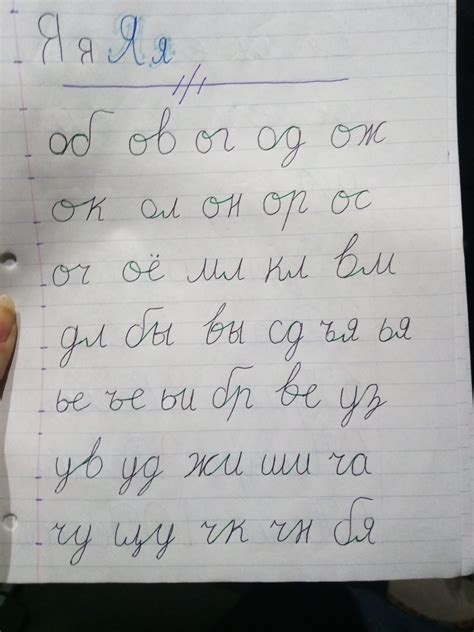 Яя Яя
об ов ог од ож
ок ол он ор ос
оч оё мл кл вм
дл бы вы сд ъя ья
ье ъе ьи бр ве уз
ув уд жи ши ча
чу щу чк чн бя